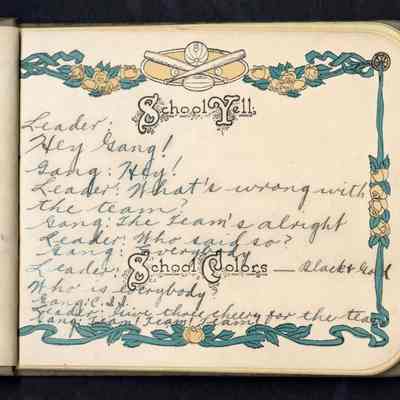 School Yell.
Leader:
Hey Gang!
Gang: Hey!
Leader: What's wrong with
the team?
Gang: The Team's alright
Leader: Who said so?
Gang: Everybody
Leader:
School Colors — Black & Gold
Who is everybody?
Gang:
Leader: Give three cheers for the team
Gang: Team! Team! Team!